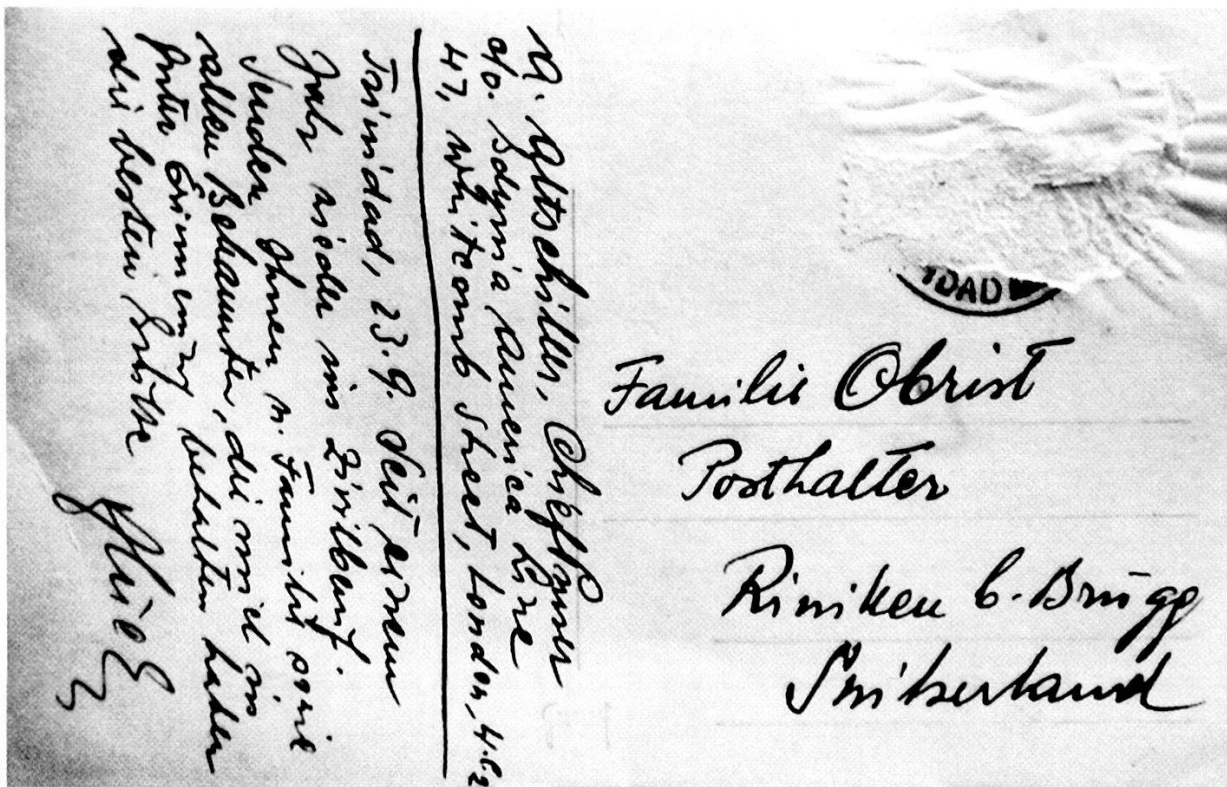 A. Altschiller,
c/o. Gdynia America Line
47, Whitcomb Street, London, W.C.2
Trinidad, 23.9. Seit einem
Jahr wieder im Zivilberuf.
Senden Ihnen u. Familie sowie
allen Bekannten, die mich in
guter Erinnerung behalten haben
die besten Grüsse
IDAD
Familie Obrist
Posthalter
Riniken b. Brugg
Switzerland